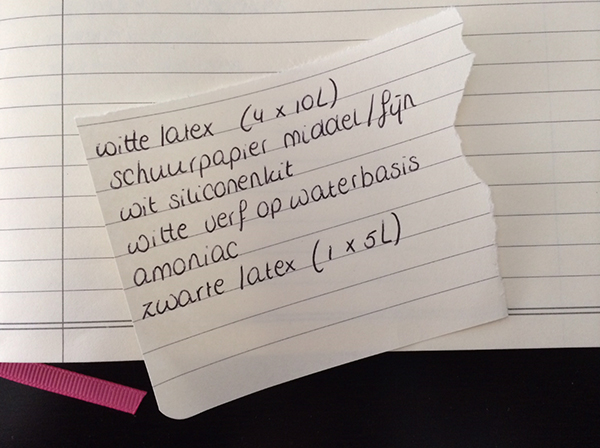 witte latex (4 x 10L)
schuurpapier middel/fijn
wit siliconenkit
witte verf op waterbasis
amoniac
zwarte latex (1 x 5L)